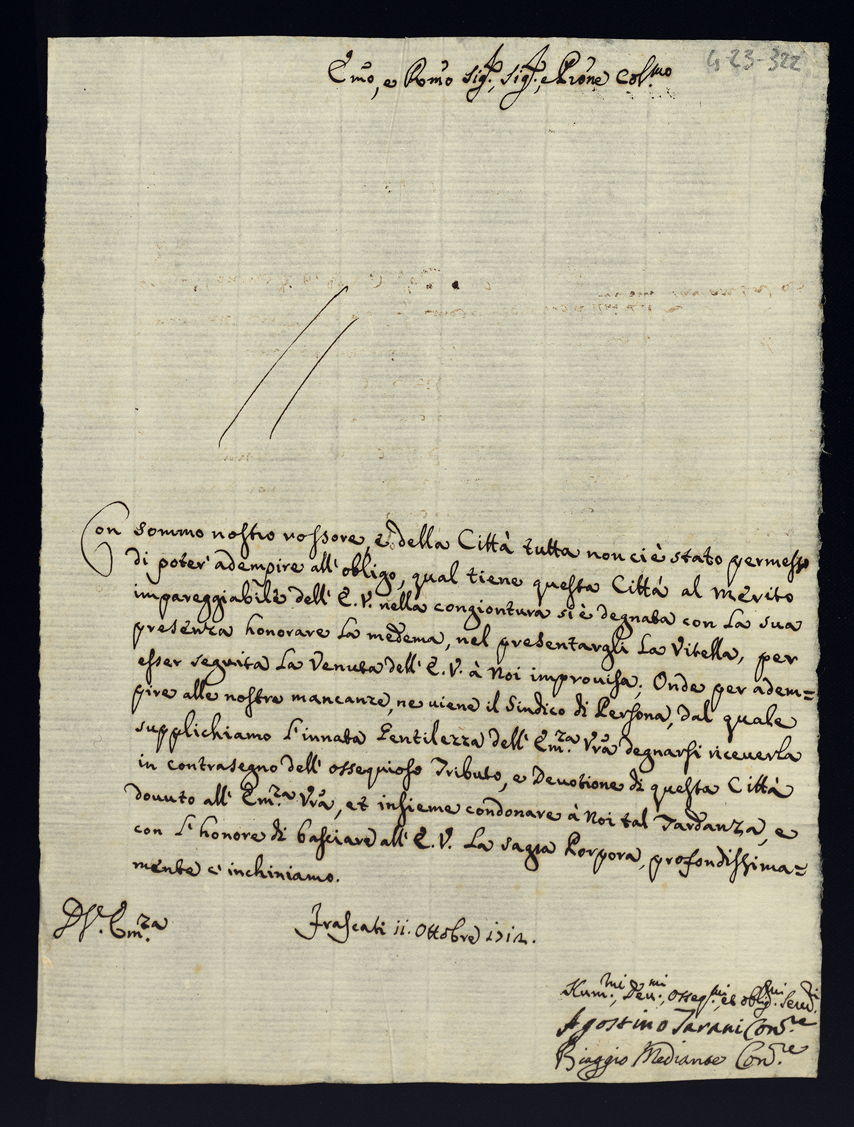 G-23-322
Emo, e Rmo Sig.r, Sig.r, e Prone Col.mo
Con sommo nostro rossore, e della Città tutta non ci è stato permesso
di poter' adempire all' obligo, qual tiene questa Città al merito
impareggiabile dell' E.V. nella congiontura si è degnata con la sua
presenza honorare la medema, nel presentargli la Vitella, per
esser seguita la Venuta dell' E.V. à Noi improvisa; Onde per adem=
pire alle nostre mancanze, ne viene il Sindico di Persona, dal quale
supplichiamo l'innata Gentilezza dell' Em.za Vra degnarsi riceverla
in contrasegno dell' ossequioso Tributo, e Devotione di questa Città
dovuto all' Em.za Vra, et insieme condonare à Noi tal Tardanza, e
con l' honore di basciare all' E.V. La sagra Porpora, profondissima=
mente c' inchiniamo.
D.V. Em.za
Frascati 11. Ottobre 1712.
Hum.mi, Dev.mi, Osseq.mi, et oblig.mi Serv.ri
Agostino Tarani Con.re
Biaggio Mediante Con.re